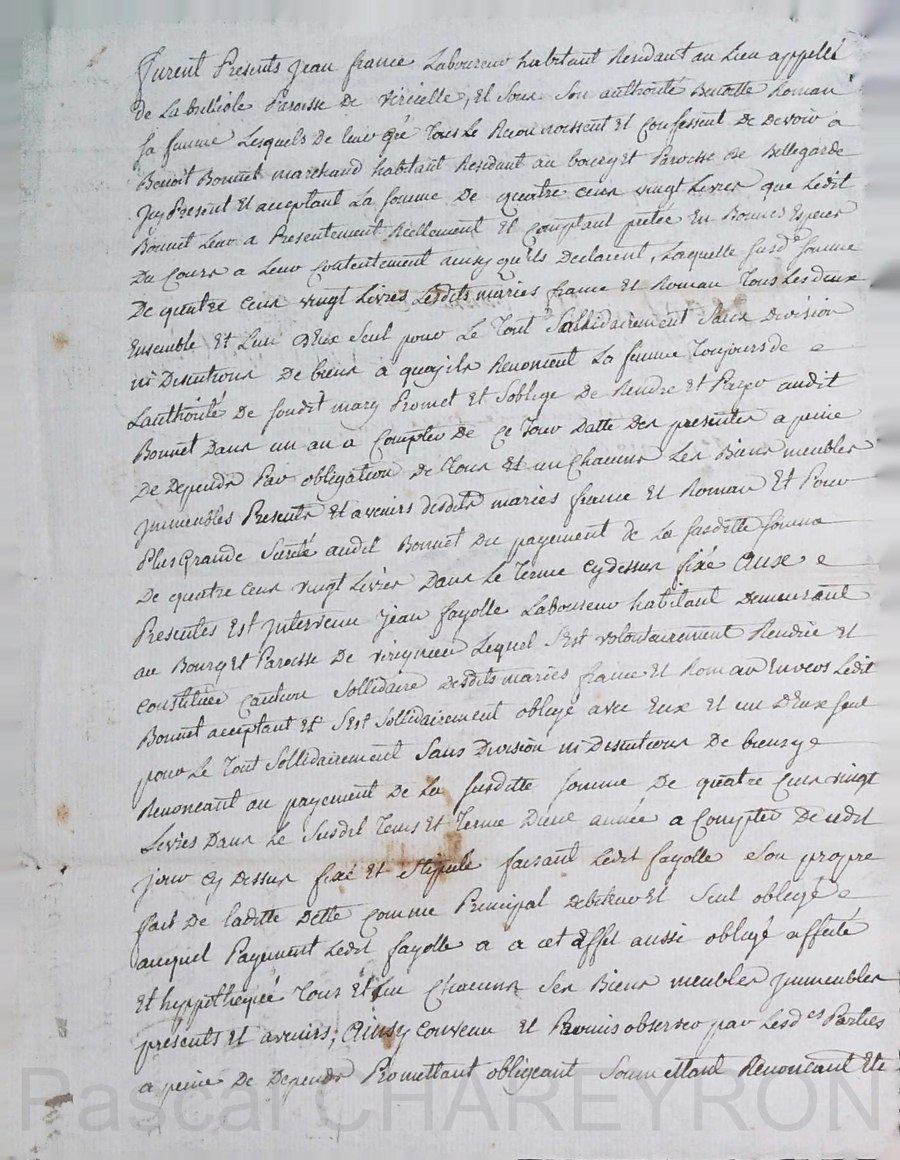 furent Presents Jean france Laboureur habitant Residant au Lieu appellé
de La Paroisse De viricelle, et sous son authorité Benoitte Roman
sa femme Lesquels De leur gré Tous Le Reconnoissent et confessent De Devoir a
Benoit Bonnet marchand habitant Residant au bourg et Paroisse De Bellegarde
icy Present et acceptant La somme De quatre cens vingt Livres que Ledit
Bonnet Leur a Presentement Réellement et comptant pretée En Bonnes Especes
Du Cours a Leur Contentement ainsy qu'ils Declarent, Laquelle susde somme
De quatre cens vingt Livres Lesdits mariés france et Roman Tous Les deux
Ensemble et L'un D'Eux seul pour Le Tout Sollidairement Sans Division
ni Discutions De biens a quoy ils Renoncent La femme Toujours de
L'authorité De soudit mary Promet et s'oblige De Rendre et Payer audit
Bonnet Dans un an a Compter De ce Jour Datte Des presentes a peine
De Depends Par obligation De Tous et un Chacuns Les Biens meubles
immeubles Presents et avenirs desdits mariés france et Roman et Pour
Plus Grande Sureté audit Bonnet Du payement de La susditte somme
De quatre cens vingt Livres Dans Le Terme cy dessus fixé Aux
Presentes Est Intervenu Jean fayolle Laboureur habitant Demeurant
au Bourg et Paroisse De virigneu Lequel s'est volontairement Rendüe et
constituée caution sollidaire Desdits mariés france et Roman Envers Ledit
Bonnet acceptant et s'est sollidairement obligé avec Eux et un D'Eux seul
pour Le Tout Sollidairement Sans Division ni Discutions De biens y
Renoncant au payement De La susditte somme De quatre cens vingt
Livres Dans Le Susdit Tems et Terme D'une année a Compter De cedit
jour cy Dessus fixé et stipulé faisant Ledit fayolle son propre
fait De laditte Dette comme Principal debiteur et seul obligé
auquel Payement Ledit fayolle a a cet Effet aussi obligé affecté
Et hyppothequé Tous et un Chacuns ses Biens meubles Immeubles
presents et avenirs; Ainsy convenu et Promis observer par Lesdes Parties
a peine De Depends Promettant obligeant Soumettant Renoncant Etc
Pascal CHAREYRON